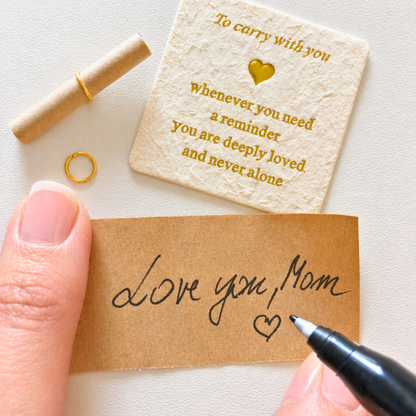 To carry with you
whenever you need
a reminder
you are deeply loved
and never alone
Love you, Mom